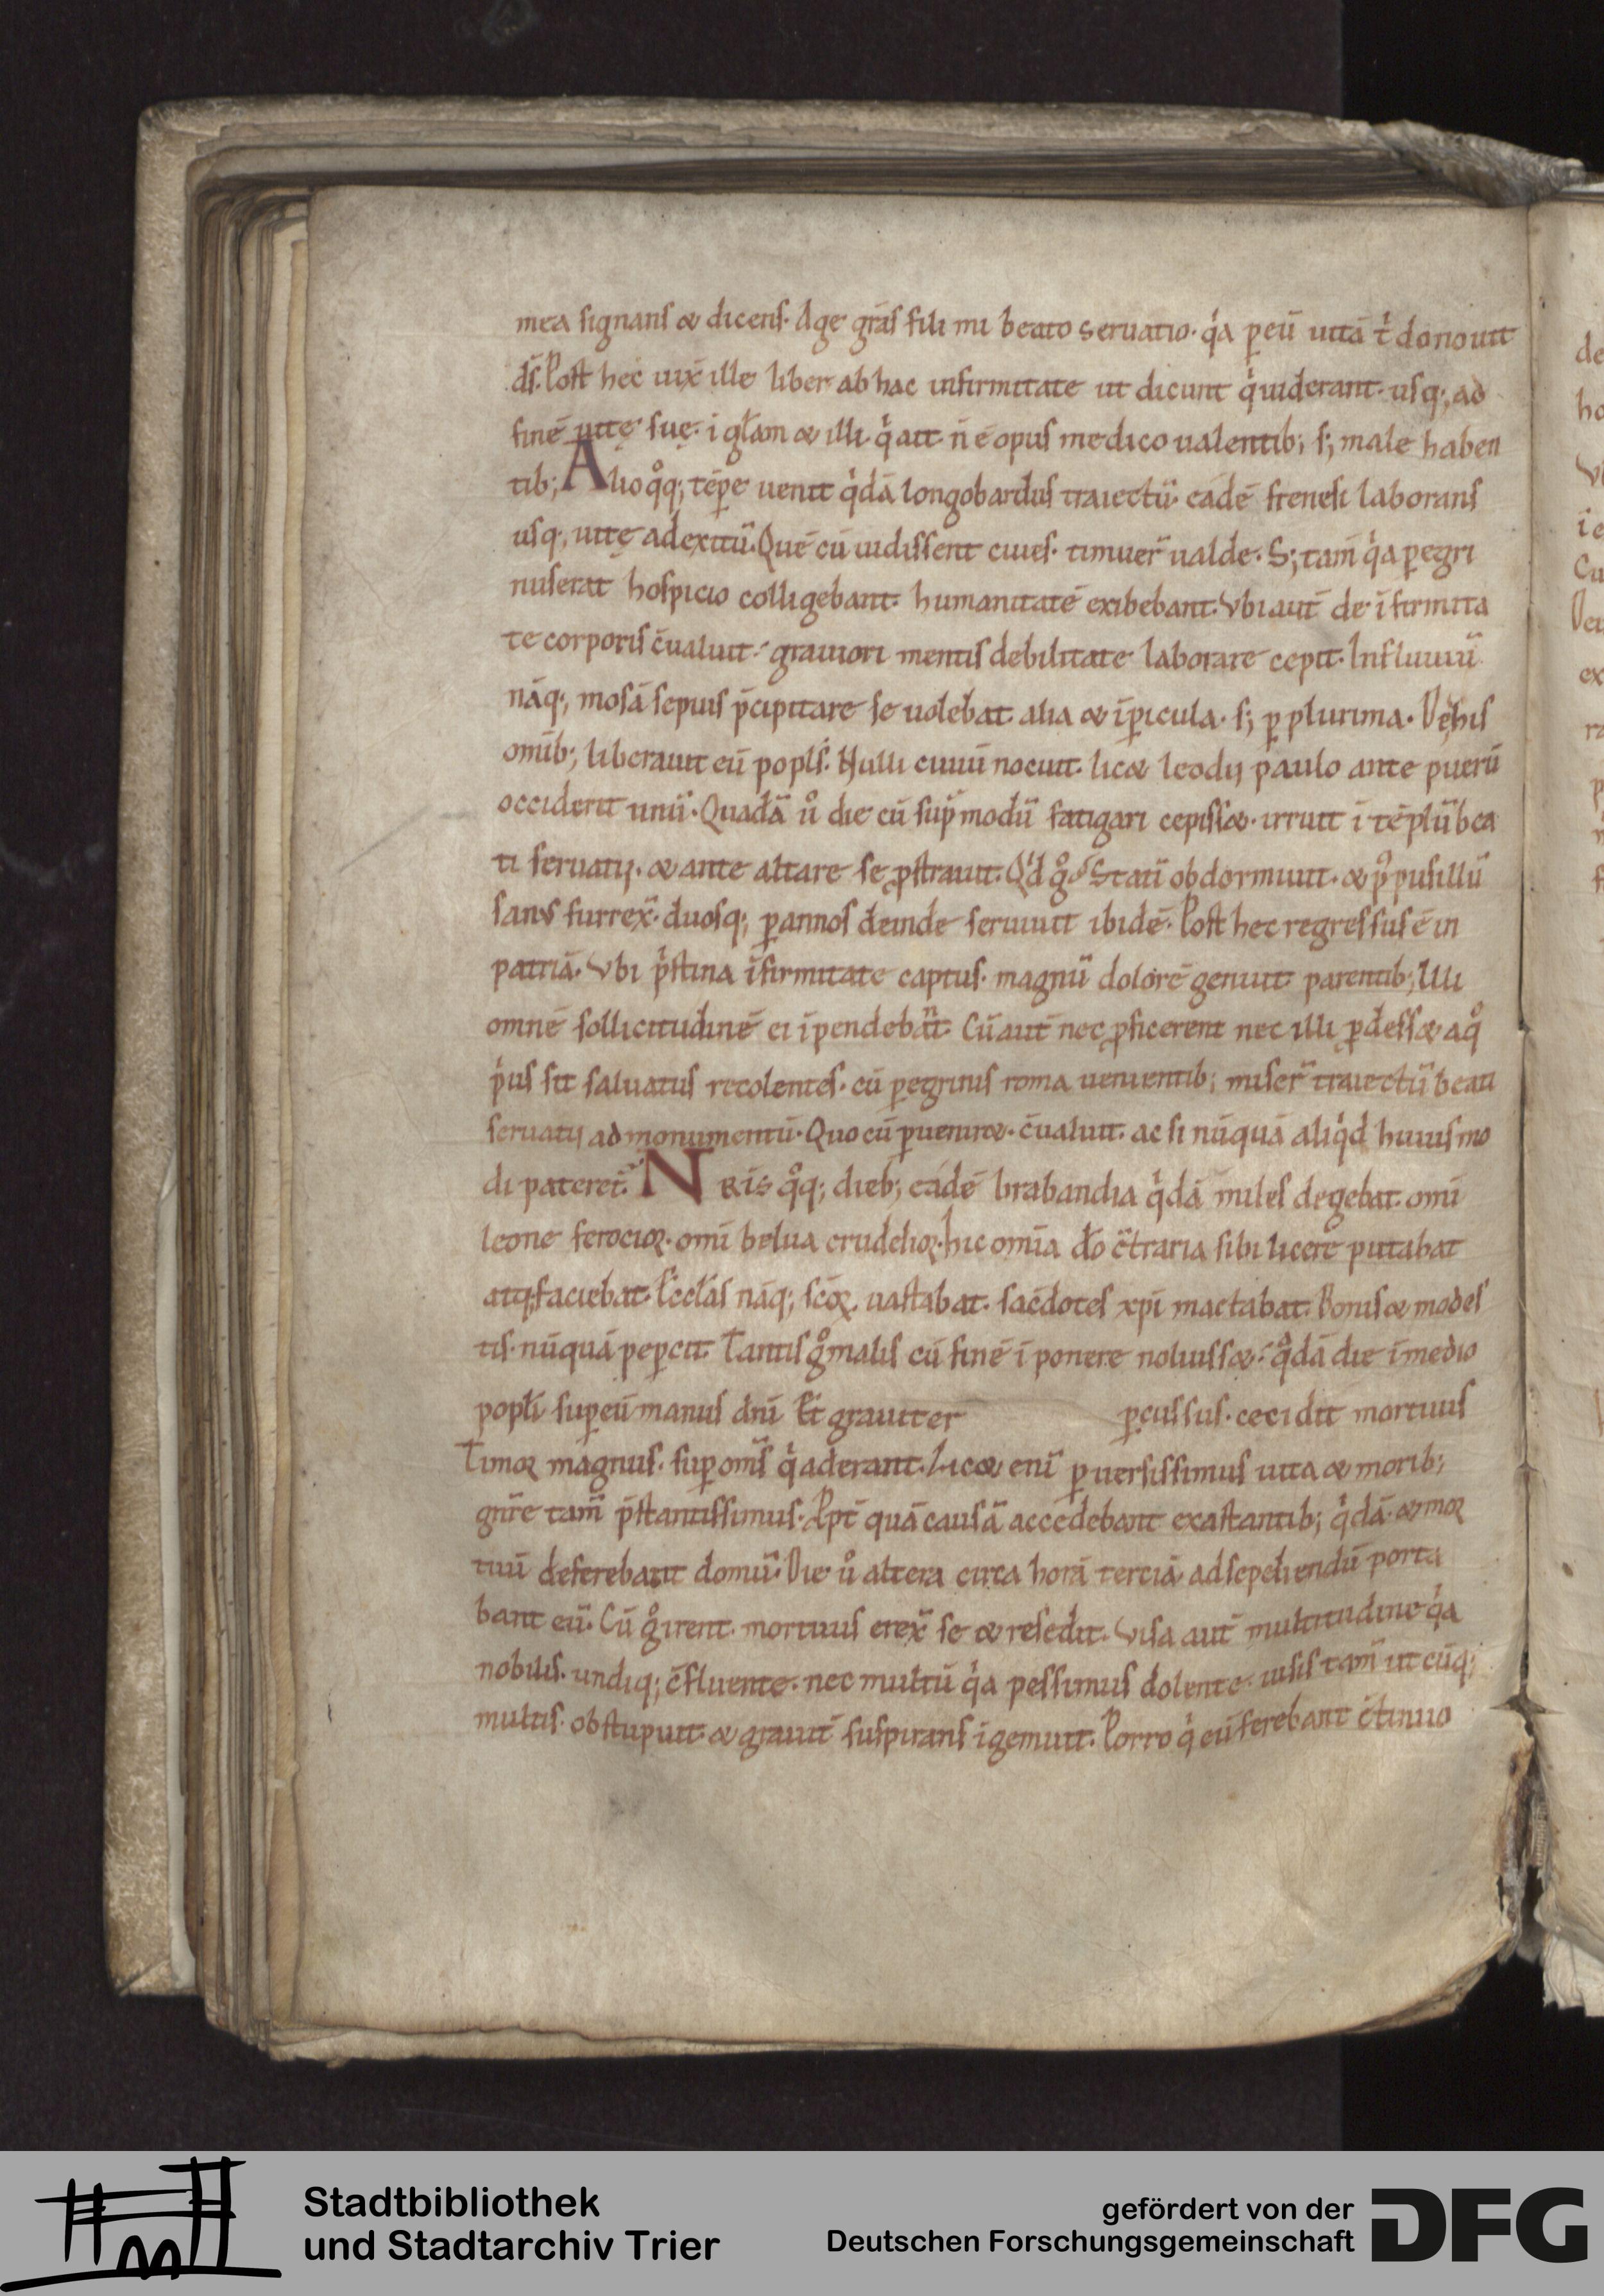 mea signans & dicens. Age grãs fili mi beato seruatio. qͥa ꝑ eũ uitã tͥ donouit
ds̄. Post hęc uix̃ ille liber ab hac infirmitate ut dicunt qͥ uiderant. usq; ad
finẽ uitę suę. ĩ gl̃am & illi. qͥ ait. ñ ẽ opus medico ualentib; s; male haben
tib; Alio qͦq; tẽpe uenit qͥdã longobardus traiectũ. eadẽ frenesi laborans
usq; uitę ad exitũ. Quẽ cũ uidissent ciues. timuer̃ ualde. S; tam̃ qͥa peregri
nuserat hospicio colligebant. humanitatẽ exibebant. Vbi aut̃ de ĩfirmita
te corporis c̃ualuit. grauiori mentis debilitate laborare cepit. In fluuiũ
nãq; mosã sepius p̃cipitare se uolebat. alia & ĩ ꝑicula. s; ꝑ plurima. De his
omĩb; liberauit eũ popl̃s. Nulli ciuiũ nocuit. lic& leodij paulo ante puerũ
occiderit unũ. Quadã uͦ die cũ sup̃ modũ fatigari cepiss&. irruit ĩ tẽplũ bea
ti seruatij. & ante altare se ꝓstrauit. Qͥd gͦ? Statĩ obdormiuit. & pꝰ pusillũ
sanus surrex̃. duosq; ꝑ annos deinde seruiuit ibidẽ. Post hec regressus ẽ in
patriã. Vbi pͥstina ĩfirmitate captus. magnũ dolorẽ genuit parentib; Illi
omnẽ sollicitudinẽ ei ĩpendebãt. Cũ aut̃ nec ꝓficerent nec illi ꝓdess& a qͦ
pͥus sit saluatus recolentes. cũ peregrinis roma uenientib; miser̃ traiectũ beati
seruatij ad monumentũ. Quo cũ ꝑuenir&. c̃ualuit. ac si nũquã aliqͥd huiusmo
di pateret̃. NRIS qͦq; dieb; eadẽ brabandia qͥdã miles degebat. omĩ
leone ferocior. omĩ belua crudelior. hic omĩa do̅ c̃traria sibi licere putabat
atq; faciebat. Eccl̃as nãq; sc̃oꝝ uastabat. sac̃dotes xpĩ mactabat. Bonis & modes
tis. nũquã peꝑcit. Tantis gͦ malis cũ finẽ ĩponere noluiss&. qͣdã die ĩ medio
popl̃i super eũ manus dñi. Et grauiter ꝑcussus. cecidit mortuus
Timor magnus. sup om̃s qͥ aderant. Lic& enĩ ꝑuersissimus uita & morib;
gn̄re tam̃ p̃stantissimus. Ꝓpt̃ quã causã accedebant ex astantib; qͥdã. & mor
tuũ deferebant domũ. Die uͦ altera circa horã terciã ad sepeliendũ porta
bant eũ. Cũ gͦ irent. mortuus erex̃ se & resedit. Visa aut̃ multitudine qͥa
nobilis. undiq; c̃fluente. nec multũ qͥa pessimus dolente. uisis tam̃ utcũq;
multis. obstupuit. & grauit̃ suspirans ĩgemuit. Porro qͥ eũ ferebant c̃tinuo
Stadtbibliothek
und Stadtarchiv Trier
gefördert von der
Deutschen Forschungsgemeinschaft
DFG